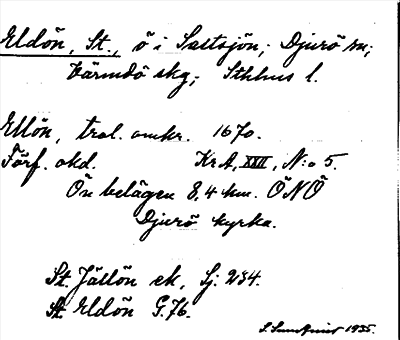 Eldön, St., ö i Saltsjön; Djurö sn;
Värmdö skg; Sthlms l.
Ellön, trol. omkr. 1670.
Förf. okd. KrA, XXII, N:o 5.
Ön belägen 8,4 km. ÖNÖ
Djurö kyrka.
St. Jällön ek, Sj: 234.
St. Eldön G.76.
S. Lundqvist 1935.